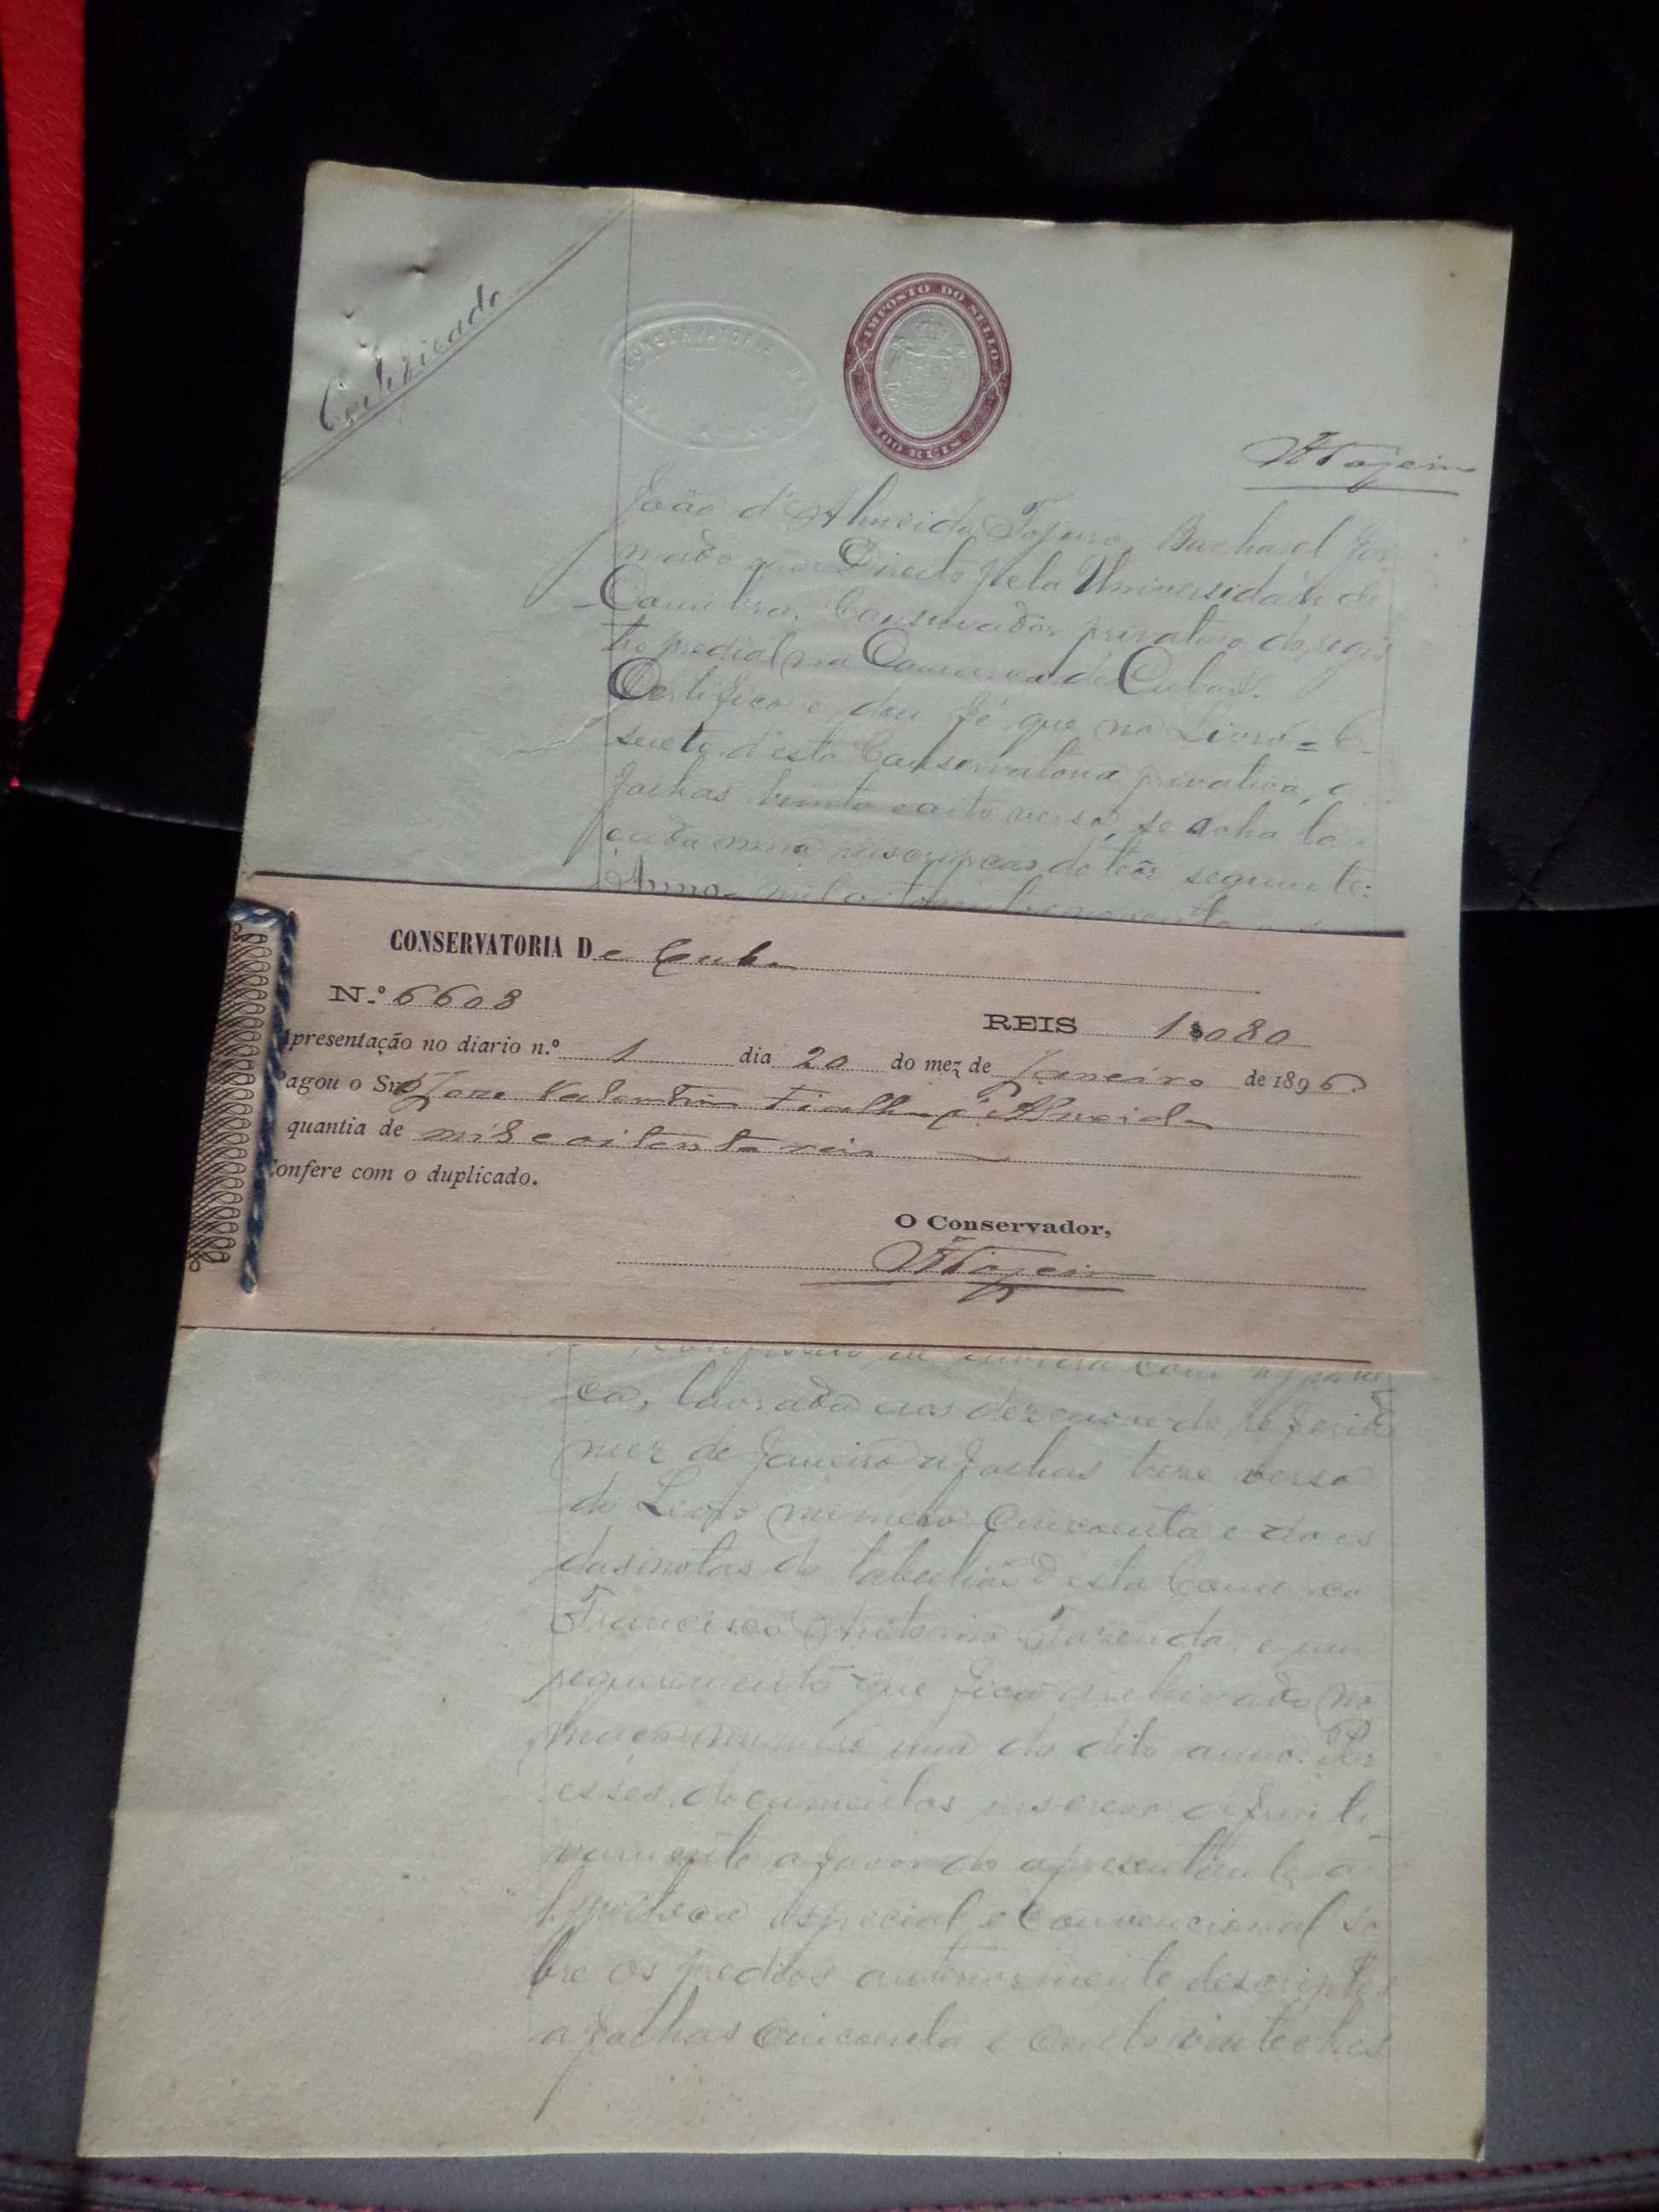 Certificado
CONSERVATORIA
IMPOSTO DO SELLO
100 REIS
João d'Almeida Tojeiro, Bacharel for-
mado em Direito pela Universidade de
Coimbra, Conservador privativo do regis
tro predial na Comarca de Cuba.
Certifico e dou fé que no Livro = C-
sete d'esta Conservatoria privativa, a
folhas vinte e oito verso, se acha lan
çada uma inscripção do teôr seguinte:
Anno mil oitocentos noventa e
CONSERVATORIA De Cuba
N.º 6608
REIS 1$080
Apresentação no diario n.º 1 dia 20 do mez de Janeiro de 1896
Pagou o Snr. Joze Valentim Fialho d'Almeida
quantia de mil e oitenta reis
Confere com o duplicado.
O Conservador,
confissão de divida com hypothe
ca, lavrada aos dezenove do referido
mez de Janeiro a folhas treze verso
do Livro numero cincoenta e dois
das notas do tabelião d'esta Comarca
Francisco Antonio Fazenda, e um
requerimento que fica archivado no
maço numero um do dito anno. Por
esses documentos inscrevo definiti-
vamente a favor do apresentante a
hypotheca especial e convencional so
bre os predios anteriormente descriptos
a folhas cincoenta e cento vinte e tres